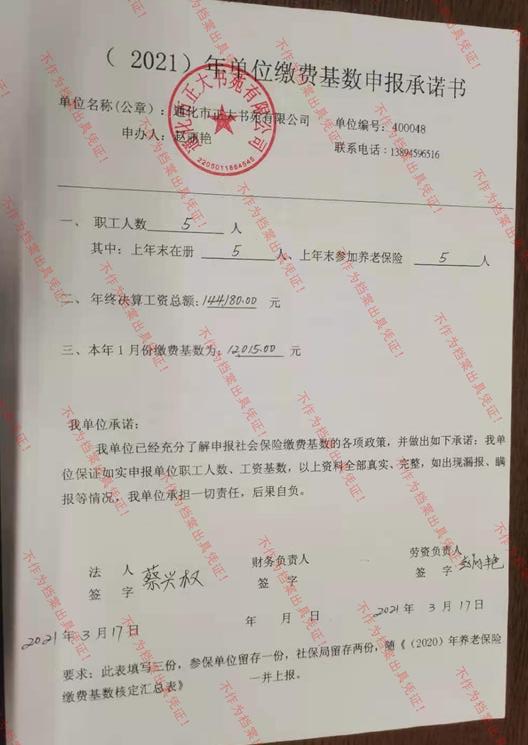 （ 2021）年单位缴费基数申报承诺书
单位名称(公章)：通化市正大书苑有限公司 单位编号：400048
申办人：赵丽艳 联系电话：13894596516
通化市正大书苑有限公司
2205011864545
一、 职工人数 5 人
其中：上年末在册 5 人、上年末参加养老保险 5 人
二、年终决算工资总额：144,180.00 元
三、本年1月份缴费基数为：12015.00 元
我单位承诺：
我单位已经充分了解申报社会保险缴费基数的各项政策，并做出如下承诺：我单
位保证如实申报单位职工人数、工资基数，以上资料全部真实、完整，如出现漏报、瞒
报等情况，我单位承担一切责任，后果自负。
法 人 财务负责人 劳资负责人
签 字 蔡兴权 签 字 签 字 赵丽艳
2021年3月17日 年 月 日 2021年3月17日
要求：此表填写三份，参保单位留存一份，社保局留存两份，随《（2020）年养老保险
缴费基数核定汇总表》 一并上报。
不作为档案出具凭证！